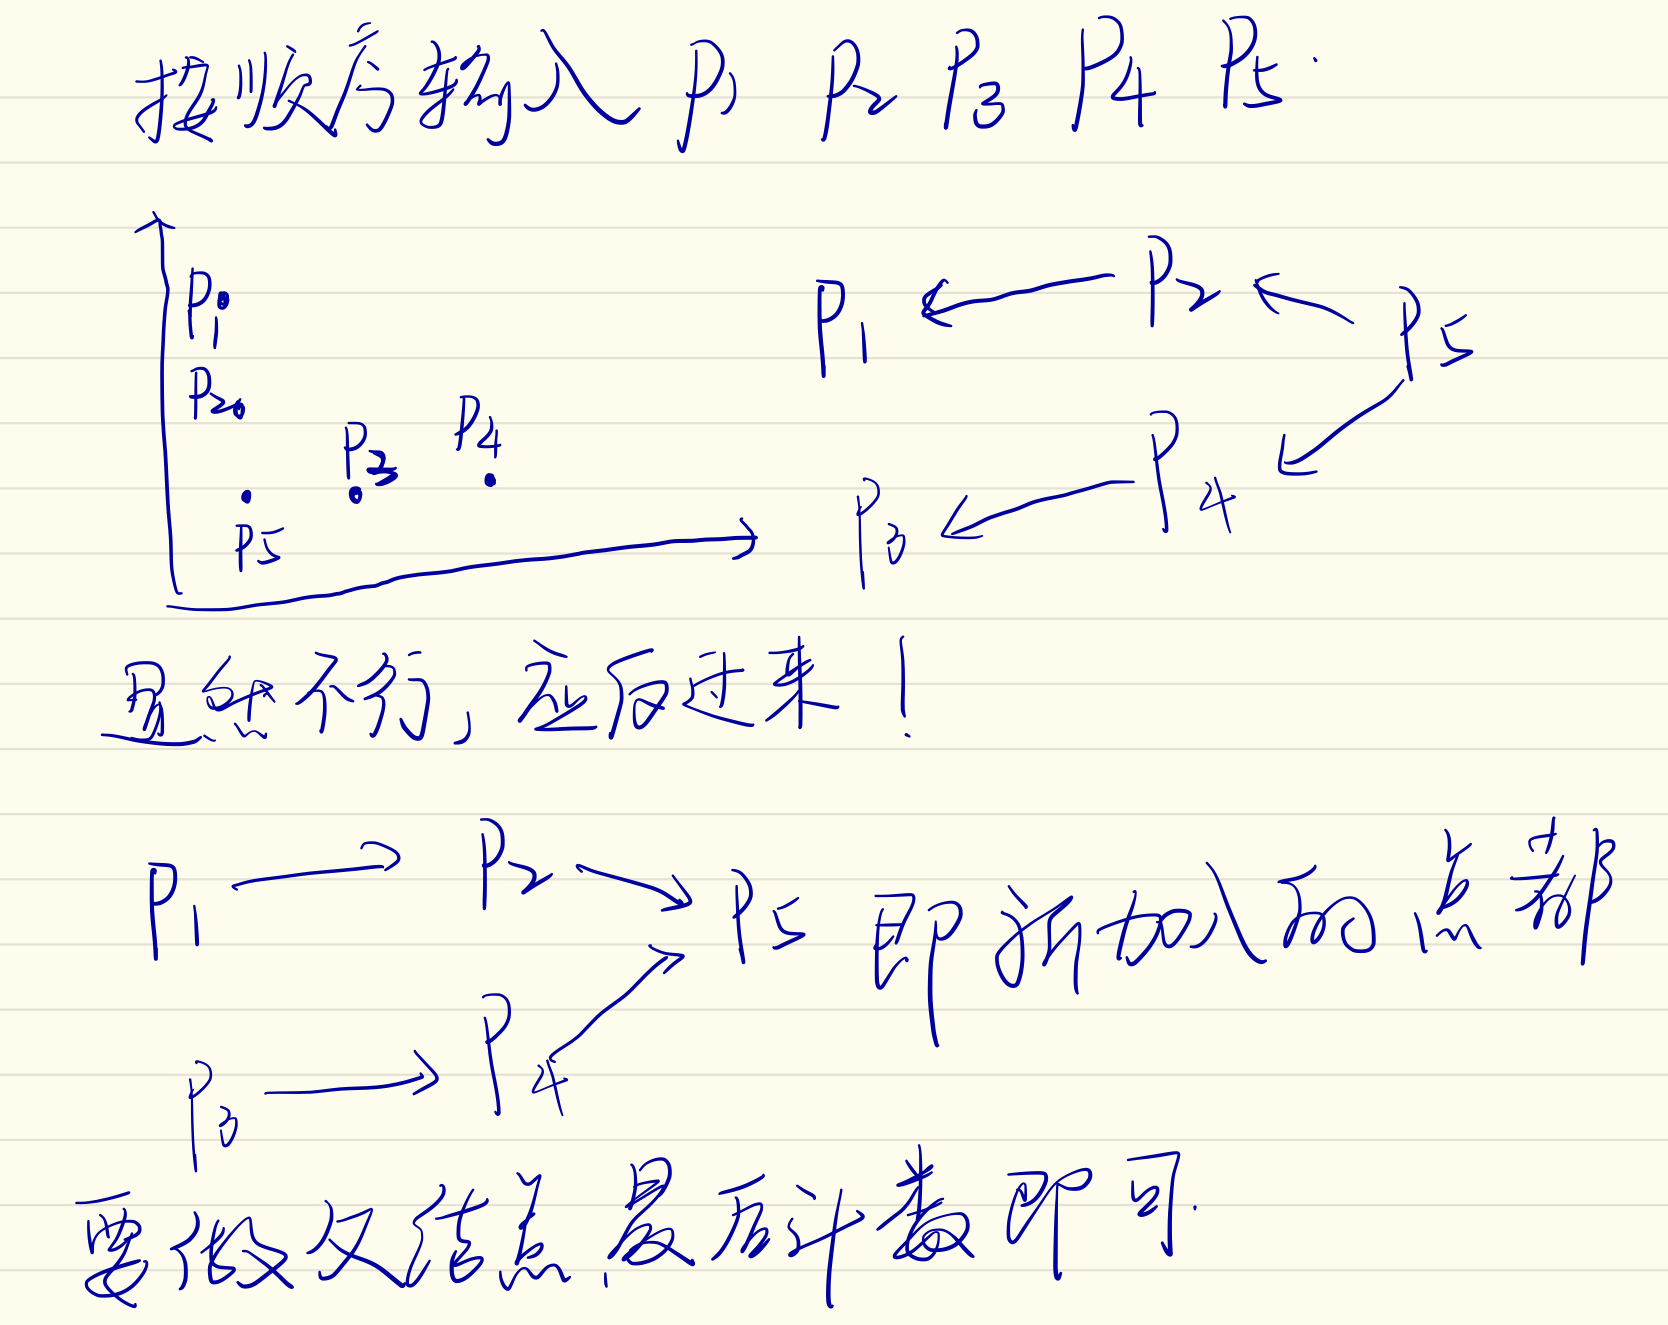 按顺序输入 P1 P2 P3 P4 P5.
P1
P2
P3 P4
P5
P1 ← P2 ← P5
P3 ← P4
显然不行, 应反过来!
P1 → P2 → P5 即新加入的点都
P3 → P4
要做父结点,最后计数即可.